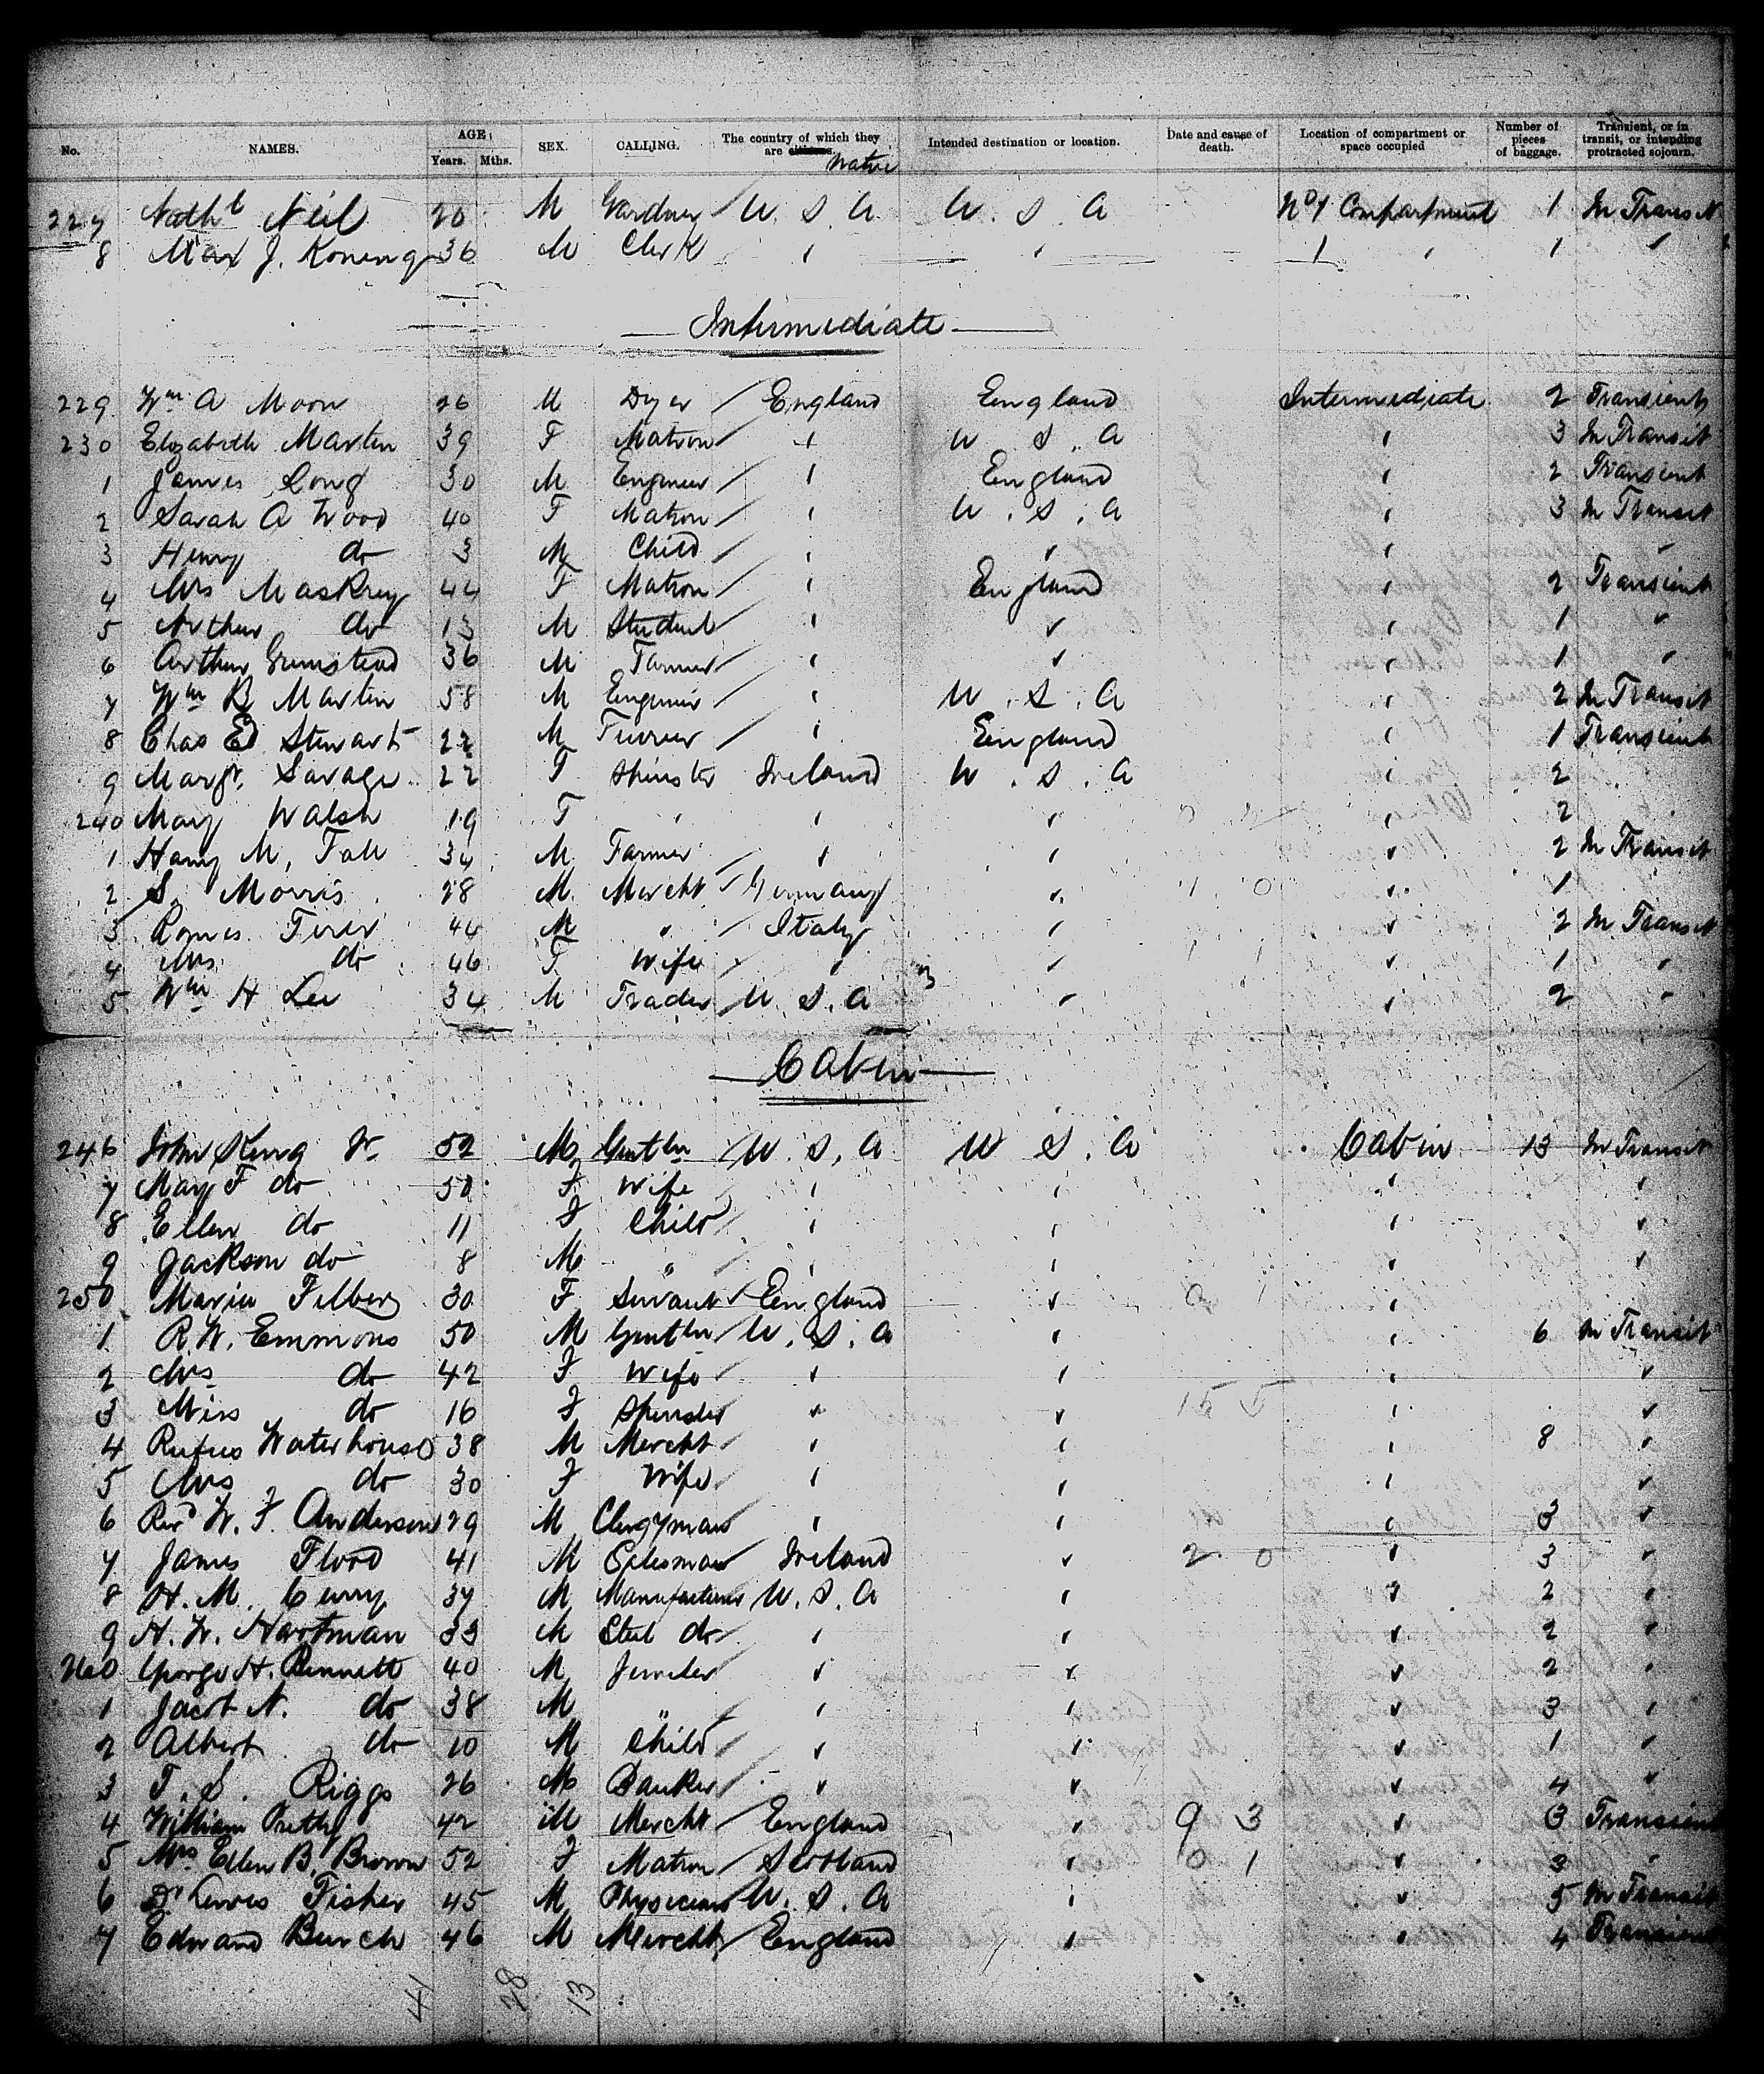 No. NAMES. AGE Years. Mths. SEX. CALLING. The country of which they are citizens. Native Intended destination or location. Date and cause of death. Location of compartment or space occupied Number of pieces of baggage. Transient, or in transit, or intending protracted sojourn.
227 Nathl Neil 20 M Gardner / U. S. A U. S. A No 1 Compartment 1 In Transit
8 Max J. Koning 36 M Clerk / " " 1 " 1 "
Intermediate
229 Wm A Moon 26 M Dyer / England England Intermediate 2 Transient
230 Elizabeth Martin 39 F Matron / " U. S. A " 3 In Transit
1 James Long 30 M Engineer / " England " 2 Transient
2 Sarah A Wood 40 F Matron / " U. S. A " 3 In Transit
3 Henry do 3 M Child / " " " "
4 Mrs Maskrey 44 F Matron / " England " 2 Transient
5 Arthur do 13 M Student / " " " 1 "
6 Arthur Grimstead 36 M Farmer / " " " 1 "
7 Wm B Martin 58 M Engineer / " U. S. A " 2 In Transit
8 Chas Ed Stewart 22 M / " England " 1 Transient
9 Margt. Savage 22 F Spinster Ireland U. S. A " 2
240 Mary Walsh 19 F " " " " 2
1 Harry M. 34 M Farmer / " " " 2 In Transit
2 S. Morris 28 M Mercht / Germany " " 1
3 44 M " / Italy " " 2 In Transit
4 Mrs do 46 F Wife " " " 1 "
5 Wm H Lee 34 M Trader U. S. A 3 " " 2 "
Cabin
246 John King Jr. 52 M Gentln / U. S. A U. S. A Cabin 13 In Transit
7 Mary F do 50 F Wife " " " "
8 Ellen do 11 F Child / " " " "
9 Jackson do 8 M " " " " "
250 Maria Filbery 30 F Servant / England " "
1 R. W. Emmons 50 M Gentln / U. S. A " " 6 In Transit
2 Mrs do 42 F Wife / " " " "
3 Miss do 16 F Spinster " " 15 5 " "
4 Rufus Waterhouse 38 M Mercht / " " " 8 "
5 Mrs do 30 F Wife / " " " "
6 Revd W. F. Anderson 29 M Clergyman " " " 3 "
7 James Flood 41 M Salesman Ireland " 2 0 " 3 "
8 H. M. Curry 37 M Manufacturer U. S. A " " 2 "
9 H. W. Hartman 33 M Steel do / " " " 2 "
260 George H. Bennett 40 M Jeweler " " " 2 "
1 Jacob N. do 38 M " " " " 3 "
2 Albert do 10 M Child / " " " 1 "
3 T. S. Riggs 26 M Banker / " " " 4 "
4 William Pretty 42 M Mercht / England " 9 3 " 3 Transient
5 Mrs Ellen B. Brown 52 F Matron / Scotland " 0 1 " 3 "
6 Dr Fisher 45 M Physician U. S. A " " 5 In Transit
7 Edward Burch 46 M Mercht / England " " 4 Transient
41 28 13